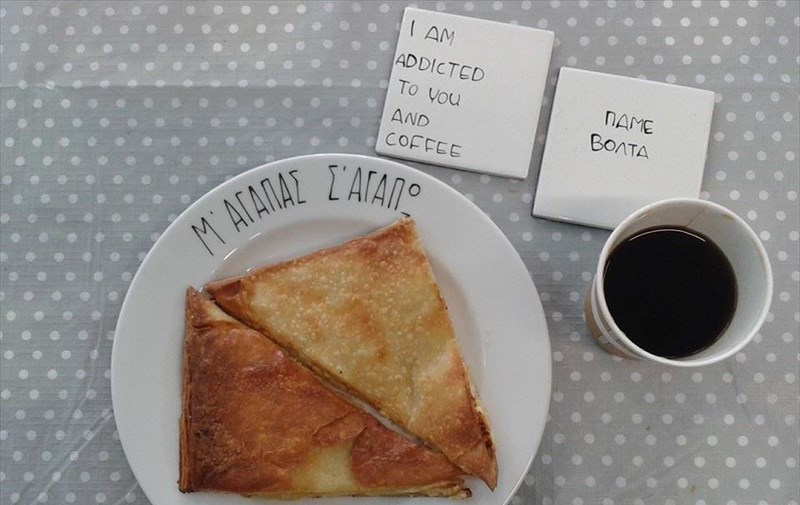 I AM
ADDICTED
TO YOU
AND
COFFEE
ΠΑΜΕ
ΒΟΛΤΑ
Μ' ΑΓΑΠΑΣ Σ'ΑΓΑΠΩ